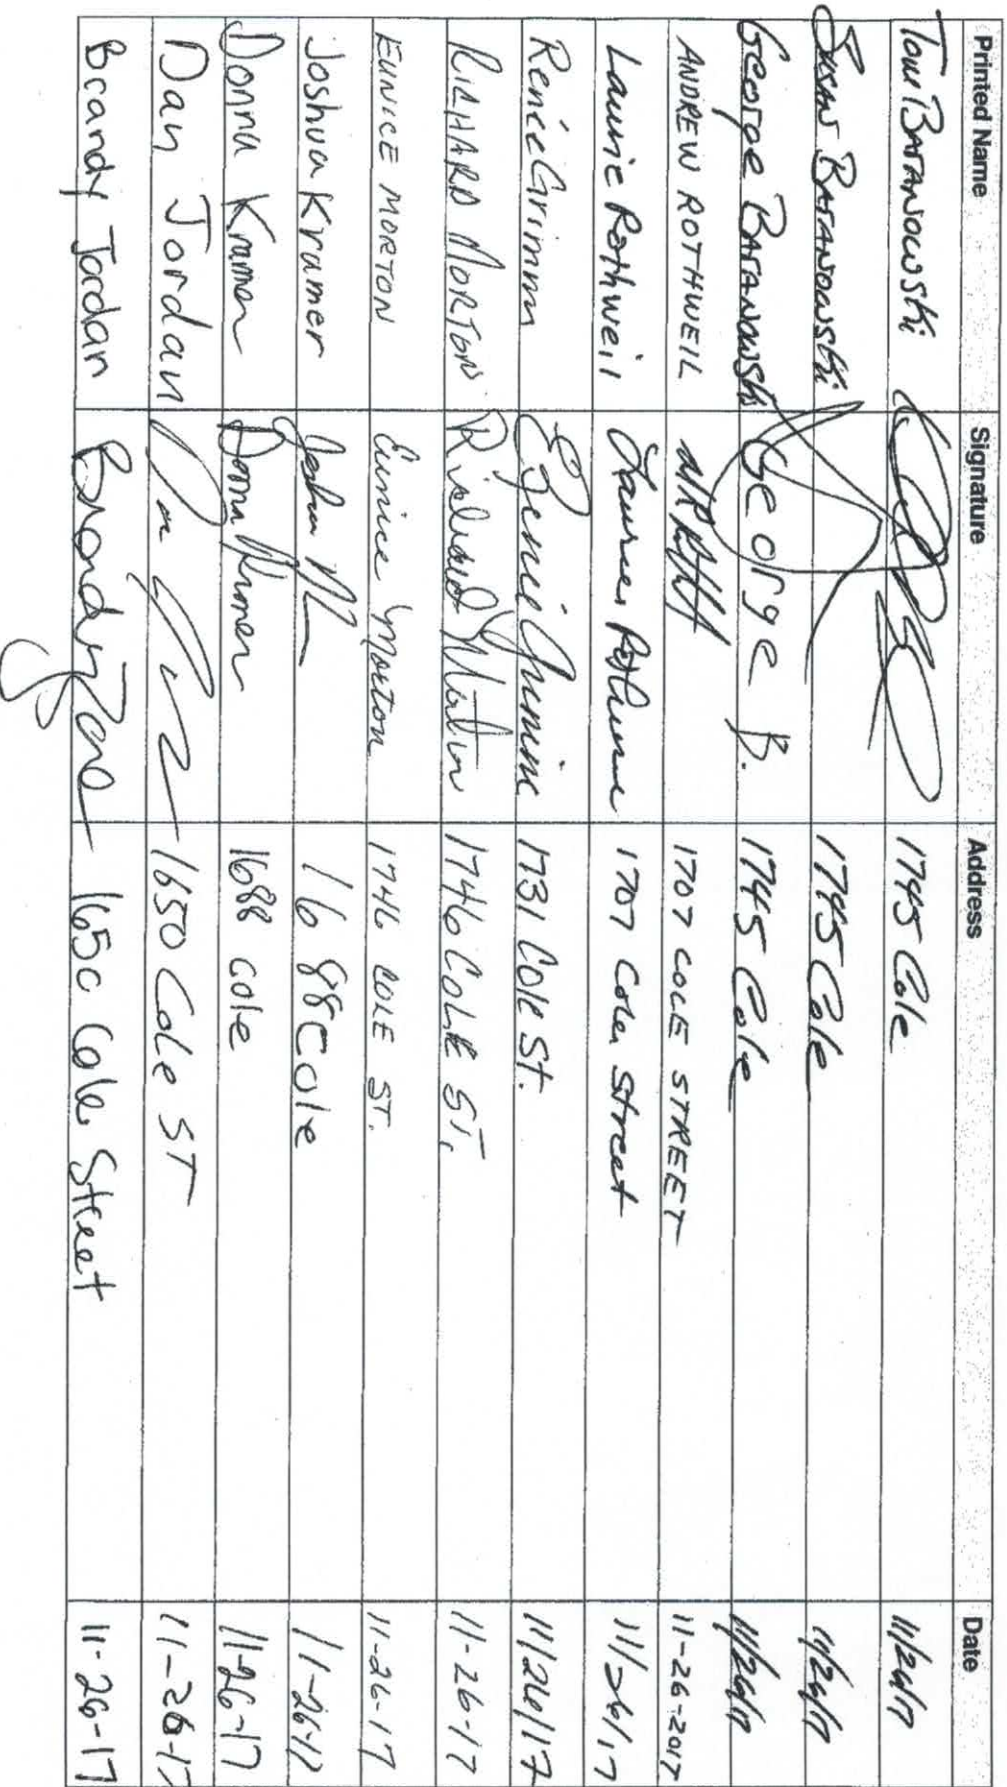 Printed Name Signature Address Date
Tom Baranowski 1745 Cole 11/26/17
Susan Baranowski 1745 Cole 11/26/17
George Baranowski George B. 1745 Cole 11/26/17
ANDREW ROTHWEIL 1707 COLE STREET 11-26-2017
Laurie Rothweil 1707 Cole Street 11/26/17
Renée Grimm Renée Grimm 1731 Cole St. 11/26/17
RICHARD MORTON Richard Morton 1746 COLE ST. 11-26-17
EUNICE MORTON Eunice Morton 1746 COLE ST. 11-26-17
Joshua Kramer Joshua 1688 Cole 11-26-17
Donna Kramer Donna Kramer 1688 Cole 11-26-17
Dan Jordan 1650 Cole ST 11-26-17
Brandy Jordan Brandy 1650 Cole Street 11-26-17